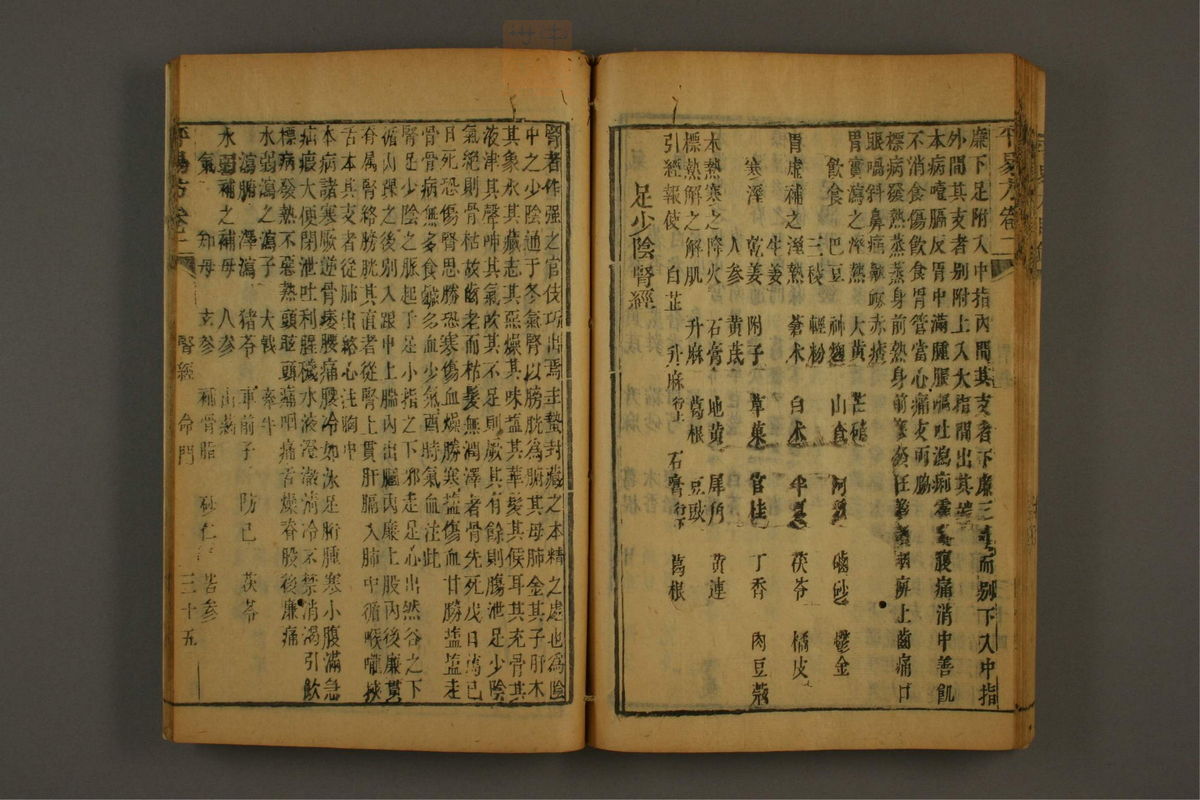 廉下足附入中指內間其支者下廉三寸而别下入中指
外間其支者别附上入大指間出其端
本病噎膈反胃中滿腫脹嘔吐瀉痢霍亂腹痛消中善飢
不消食傷飲食胃管當心痛支兩脇
標病發熱蒸蒸身前熱身前寒發狂譫語咽痹上齒痛口
眼喎斜鼻痛鼽衂赤
胃實瀉之 濕熱 大黃 芒硝
飲食 巴豆 神麯 山查 阿魏 硇砂 鬱金
三稜 輕粉
胃虛補之 溼熱 蒼朮 白朮 半夏 茯苓 橘皮
生姜
寒溼 乾姜 附子 草菓 官桂 丁香 肉豆蔻
人參 黃芪
本熱寒之 降火 石膏 地黃 犀角 黃連
標熱解之 解肌 升麻 葛根 豆豉
引經報使 白芷 升麻行上 石膏行下 葛根
足少陰腎經
平易方卷二
腎者作强之官伎巧出焉主蟄封藏之本精之處也爲陰
中之少陰通于冬氣腎以膀胱爲腑其母肺金其子肝木
其象水其藏志其惡燥其味鹽其華髮其候耳其充骨其
液津其聲呻其氣吹其不足則厥其有餘則腸泄足少陰
氣絶則骨枯故齒老而枯髮無潤澤者骨先死戊日篤己
日死恐傷腎思勝恐寒傷血燥勝寒鹽傷血甘勝鹽鹽走
骨骨病無多食鹽多血少氣酉時氣血注此
腎足少陰之脈起于足小指之下邪走足心出然谷之下
循內踝之後别入跟中上腨內出膕內廉上股內後廉貫
脊屬腎絡膀胱其直者從腎上貫肝膈入肺中循喉嚨挾
舌本其支者從肺出絡心注胸中
本病諸寒厥逆骨痿腰痛腰冷如氷足胻腫寒小腹滿急
疝瘕大便閉泄吐利腥穢水液澄澈清冷不禁消渴引飲
標病發熱不惡熱頭眩頭痛咽痛舌燥脊股後廉痛
水弱瀉之 瀉子 大戟 牽牛
瀉腑 澤瀉 猪苓 車前子 防己 茯苓
水弱補之 補母 人參 山藥
氣 知母 玄參 補骨脂 砂仁 苦參
平易方卷二 腎經 命門 三十五